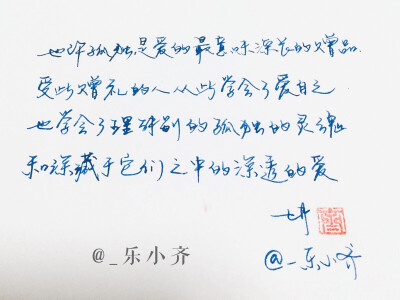 也许孤独是爱的最意味深长的赠品
受此赠礼的人从此学会了爱自己
也学会了理解别的孤独的灵魂
和深藏于它们之中的深邃的爱
@_乐小齐
@_乐小齐